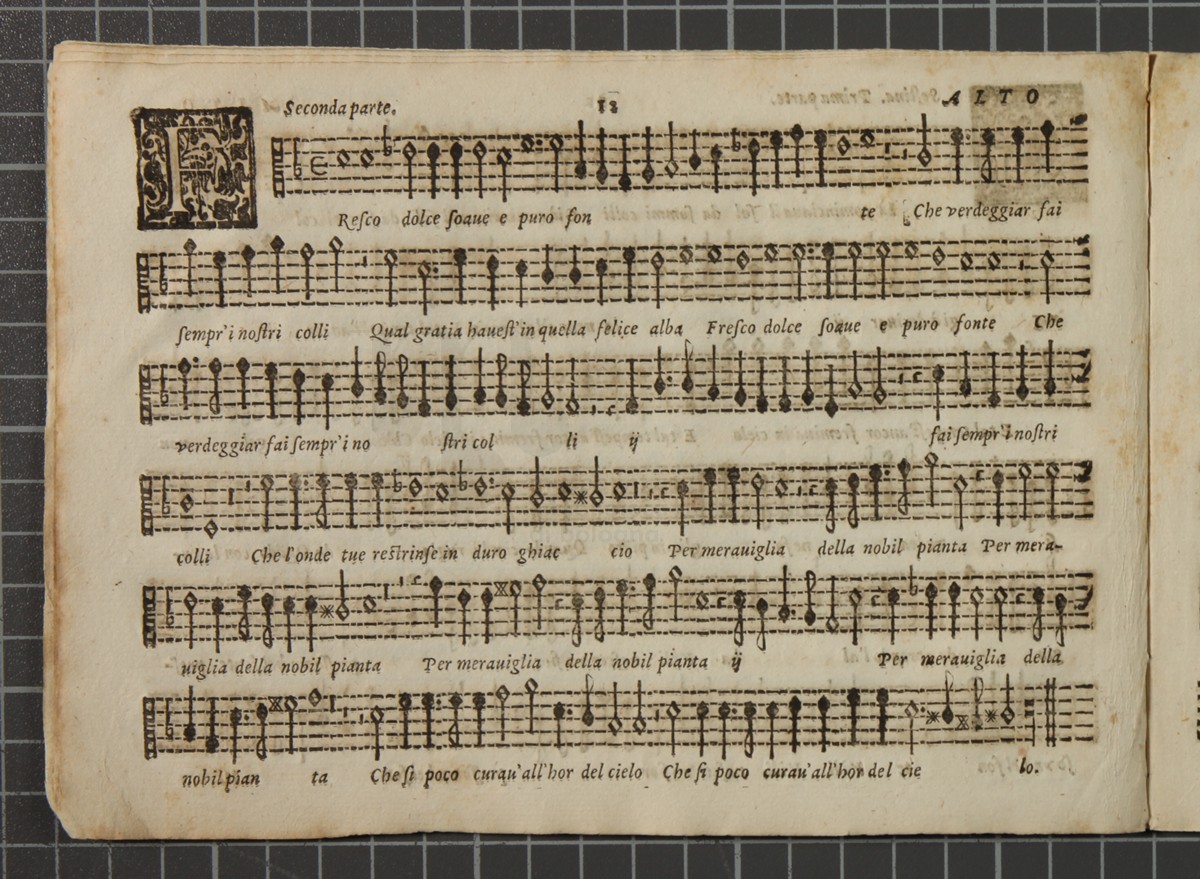 Seconda parte. 12 ALTO
FResco dolce soaue e puro fon te Che verdeggiar fai
sempr'i nostri colli Qual gratia hauest'in quella felice alba Fresco dolce soaue e puro fonte Che
verdeggiar fai sempr'i no stri col li ij fai sempr'i nostri
colli Che l'onde tue restrinse in duro ghiac cio Per merauiglia della nobil pianta Per mera-
uiglia della nobil pianta Per merauiglia della nobil pianta ij Per merauiglia della
nobil pian ta Che si poco curau'all'hor del cielo Che si poco curau'all'hor del cie lo.